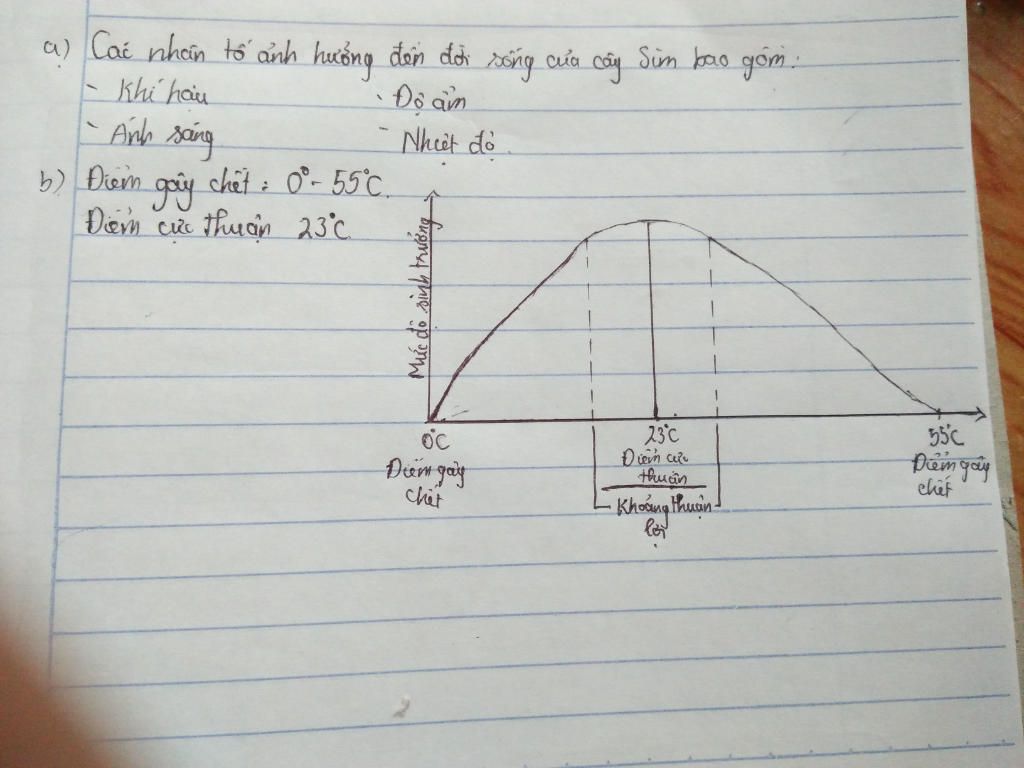 a) Các nhân tố ảnh hưởng đến đời sống của cây Sim bao gồm:
- Khí hậu - Độ ẩm
- Ánh sáng - Nhiệt độ.
b) Điểm gây chết: 0° - 55°C.
Điểm cực thuận 23°C
Mức độ sinh trưởng
0°C 23°C 55°C
Điểm gây chết
Điểm cực thuận
Điểm gây chết
Khoảng thuận lợi
2